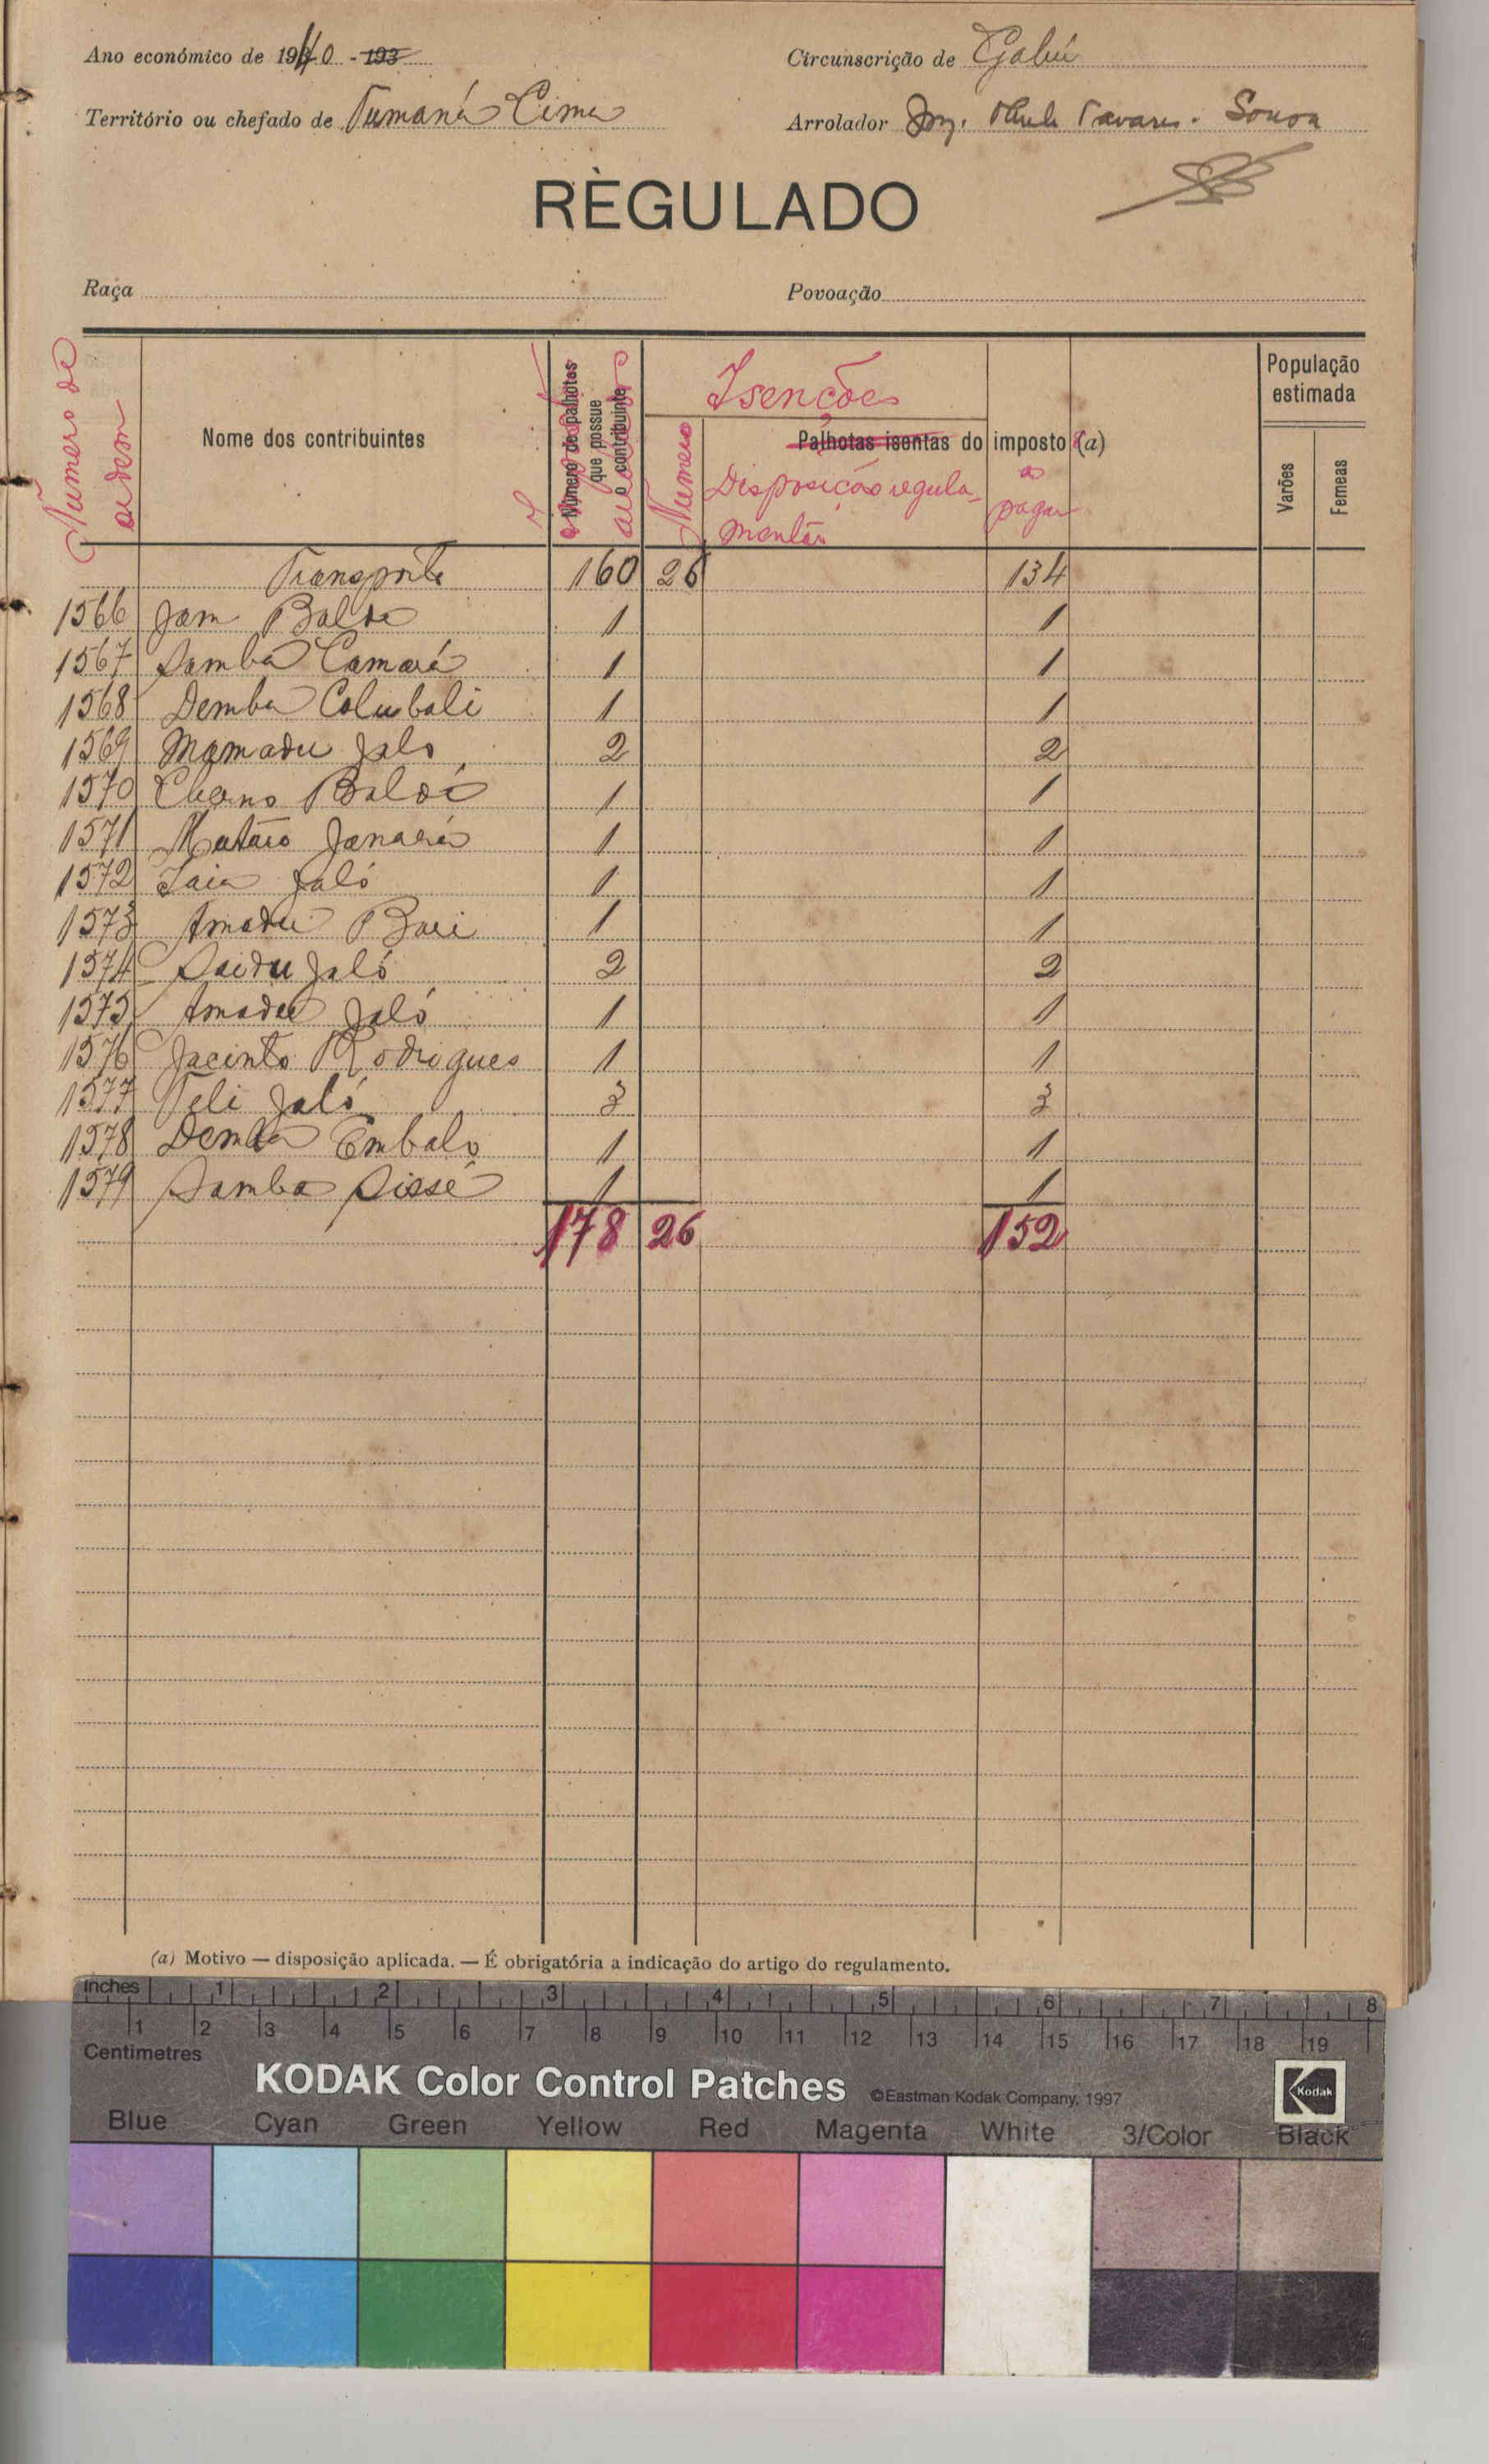 Ano económico de 1940 - 193
Circunscrição de Gabú
Território ou chefado de Tumaná Cima
Arrolador Tavares Sousa
RÈGULADO
Raça
Povoação
Número de ordem
Nome dos contribuintes
Número de palhotas que possue o contribuinte
Isenções
Palhotas isentas do imposto (a)
Número
Disposição regula-
mentar
a pagar
População estimada
Varões
Femeas
Transporte 160 26 134
1566 Jam Balde 1 1
1567 Samba Camará 1 1
1568 Demba Colubali 1 1
1569 Mamadu Jaló 2 2
1570 Cherno Baldé 1 1
1571 Mutaro Janará 1 1
1572 Jaló 1 1
1573 Amadu Bari 1 1
1574 Saidu Jaló 2 2
1575 Amadu Jaló 1 1
1576 Jacinto Rodrigues 1 1
1577 Jaló 3 3
1578 Demba Embaló 1 1
1579 Samba Sissé 1 1
178 26 152
(a) Motivo — disposição aplicada. — É obrigatória a indicação do artigo do regulamento.
Inches 1 2 3 4 5 6 7 8
1 2 3 4 5 6 7 8 9 10 11 12 13 14 15 16 17 18 19
Centimetres
KODAK Color Control Patches ©Eastman Kodak Company, 1997 Kodak
Blue Cyan Green Yellow Red Magenta White 3/Color Black